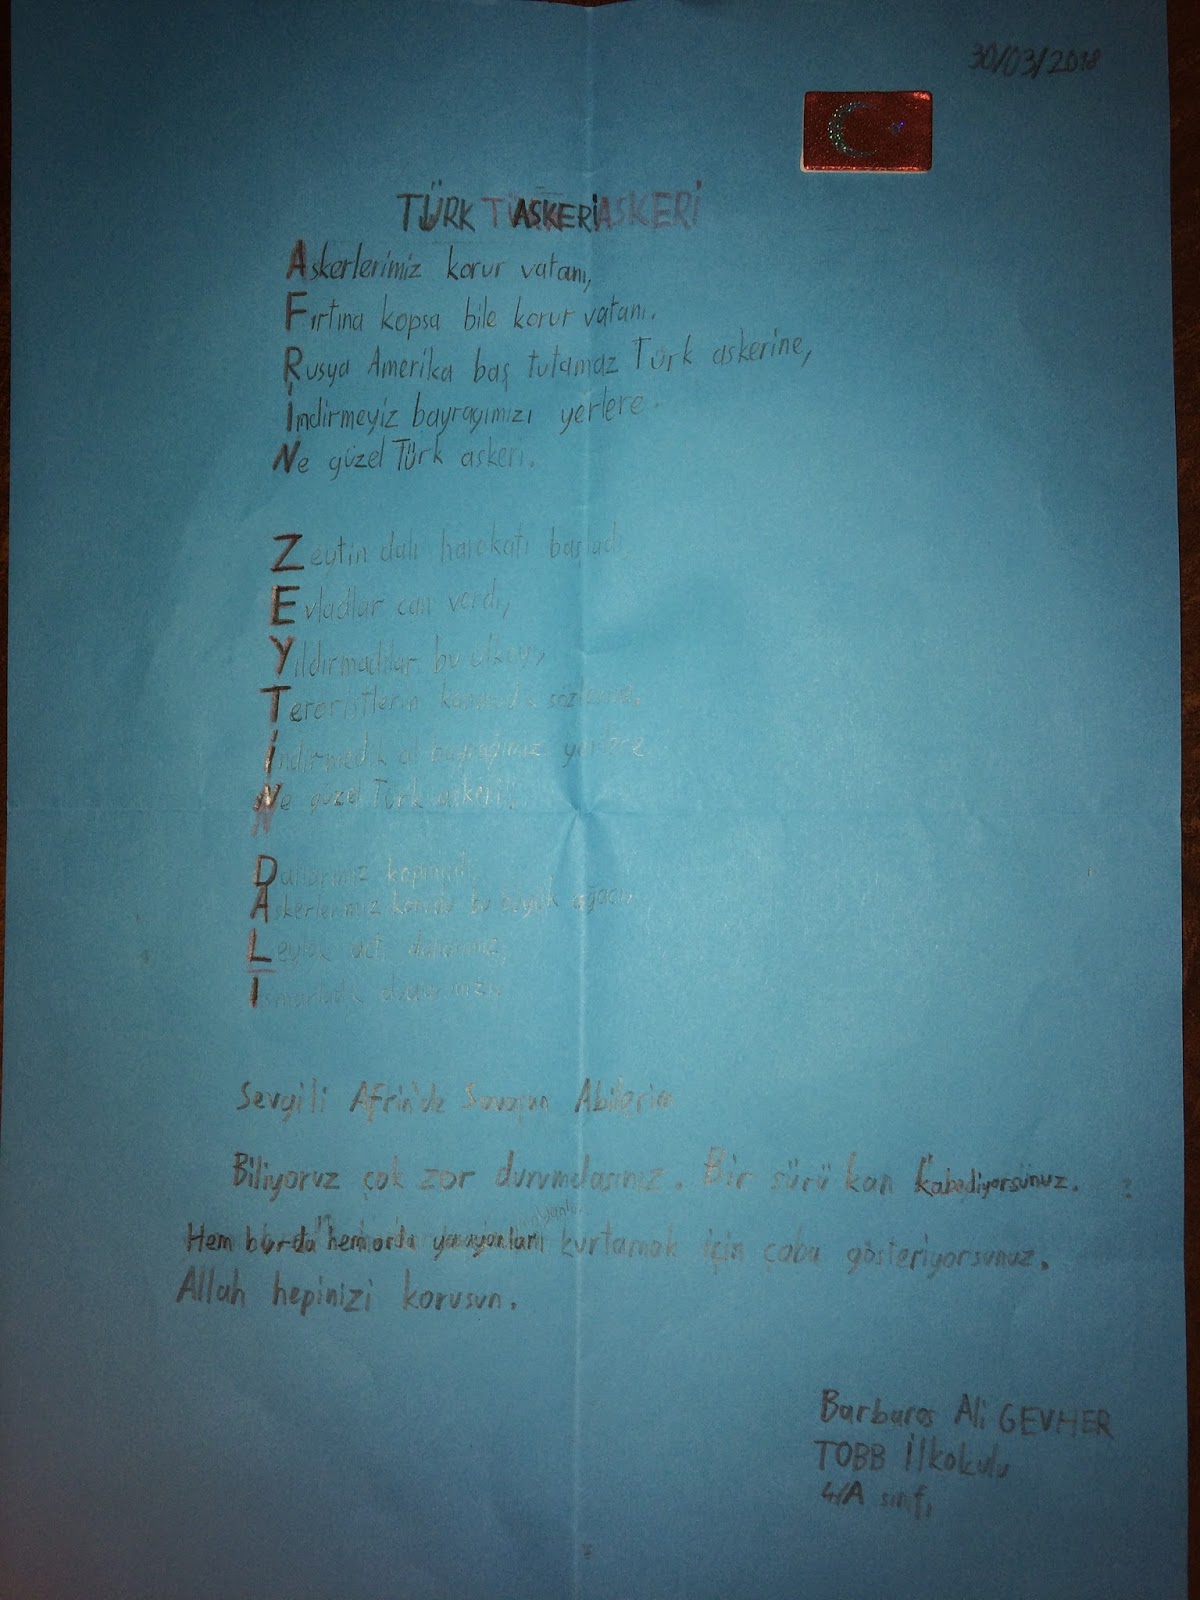 30/03/2018
TÜRK ASKERİ ASKERİ
Askerlerimiz korur vatanı,
Fırtına kopsa bile korur vatanı.
Rusya Amerika baş tutamaz Türk askerine,
İndirmeyiz bayrağımızı yerlere.
Ne güzel Türk askeri.
Zeytin dalı harekatı başladı
Evladlar can verdi,
Yıldırmadılar bu ülkeyi,
Teroristlerin sözlerine,
İndirmedik al bayrağımız yerlere
Ne güzel Türk askeri.
Dallarımız kopmadı,
Askerlerimiz korudu bu büyük ağacı,
Leylek dallarımız,
I
Sevgili Afrin'de Savaşan Abilerim
Biliyoruz çok zor durumdasınız. Bir sürü kan kabediyorsunuz.
Hem burda hem orda yaşayanları kurtamak için çaba gösteriyorsunuz.
Allah hepinizi korusun.
Barbaros Ali GEVHER
TOBB İlkokulu
4/A sınıfı